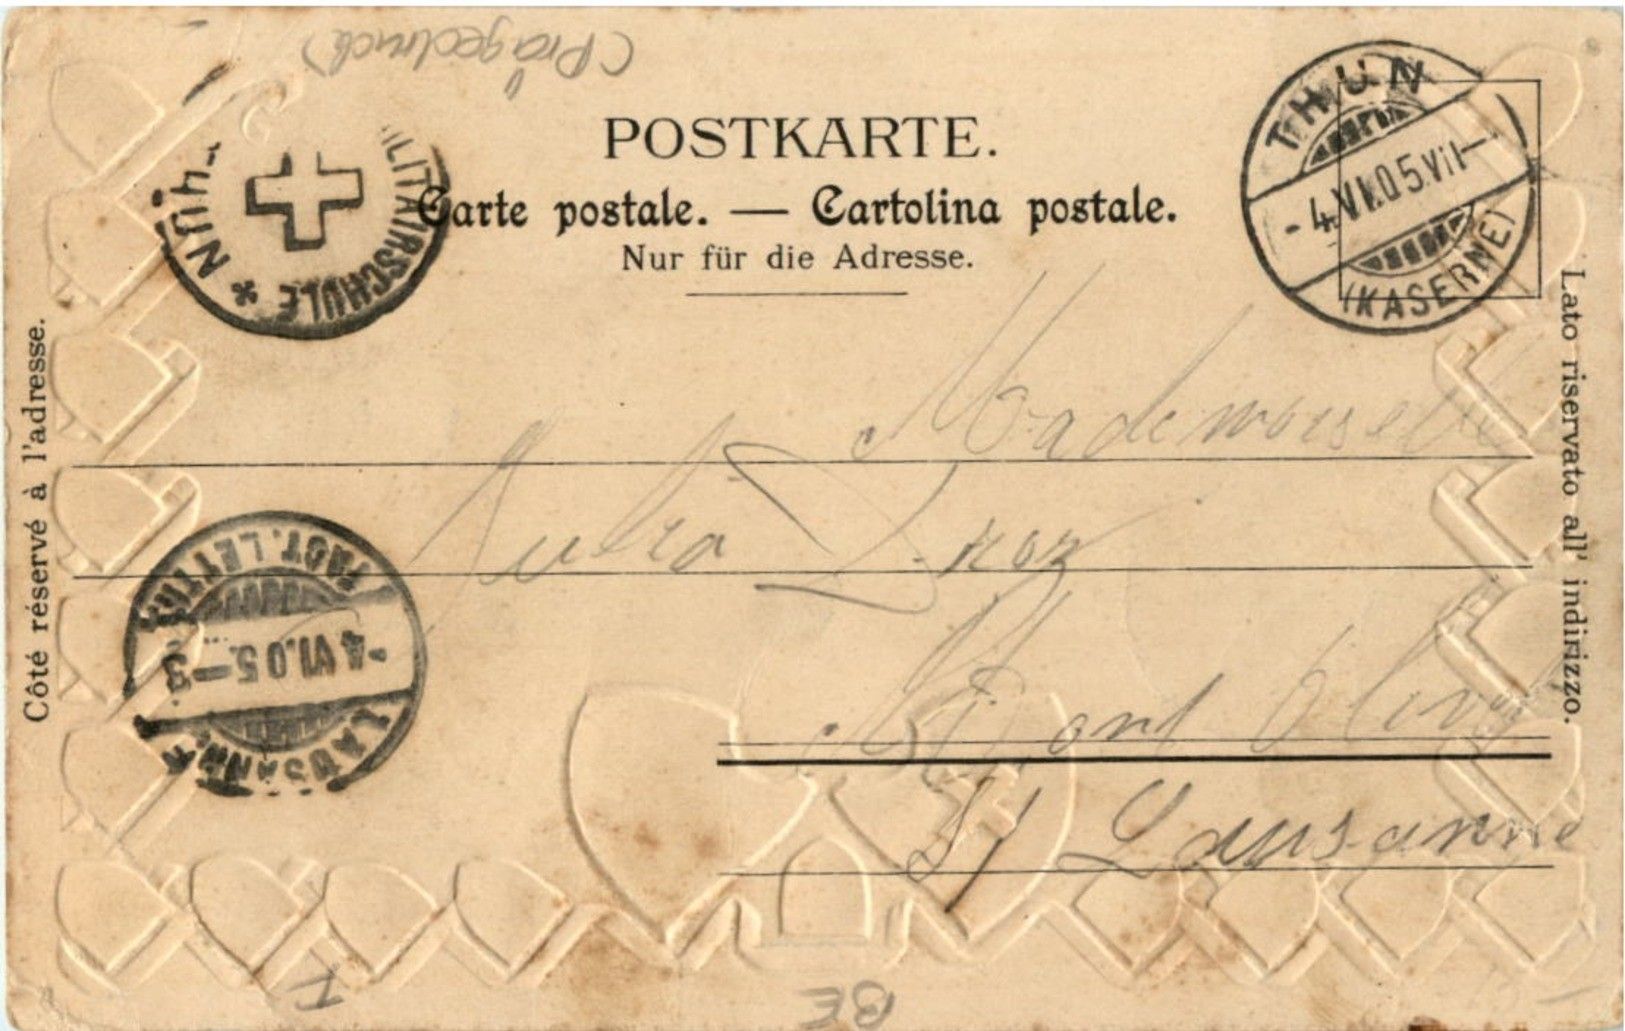 (Prägedruck)
POSTKARTE.
Carte postale. — Cartolina postale.
Nur für die Adresse.
Côté réservé à l'adresse.
Lato riservato all' indirizzo.
THUN
- 4.VI.05.VII -
(KASERNE)
MILITÄRSCHULE * THUN
Mademoiselle
Droz
Mont Olivet
s/ Lausanne
FACT. LETTR.
4.VI.05.
LAUSANNE
BE